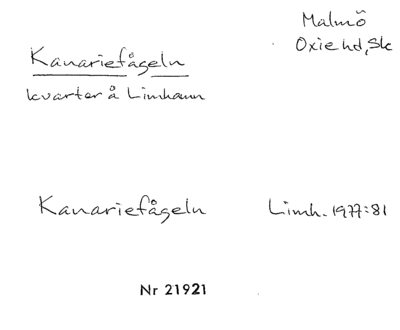 Malmö
Oxie hd, Sk
Kanariefågeln
kvarter å Limhamn
Kanariefågeln Limh. 1977:81
Nr 21921